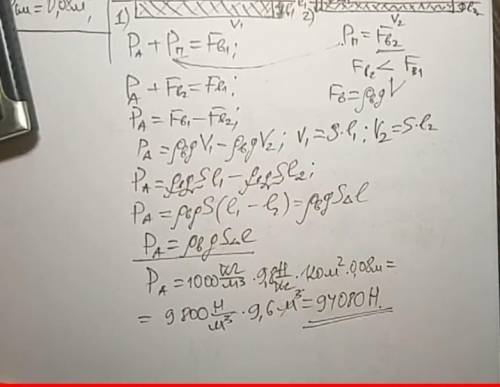 1)
V₁
2)
V₂
P_A + P_п = F_в₁;
P_п = F_в₂
P_A + F_в₂ = F_в₁;
F_в₂ < F_в₁
F_в = ρ_в g V
P_A = F_в₁ - F_в₂;
P_A = ρ_в g V₁ - ρ_в g V₂; V₁ = S·l₁; V₂ = S·l₂
P_A = ρ_в g S l₁ - ρ_в g S l₂;
P_A = ρ_в g S (l₁ - l₂) = ρ_в g S Δl
P_A = ρ_в g S Δl
P_A = 1000 кг/м³ · 9,8 Н/кг · 120 м² · 0,08 м =
= 9800 Н/м³ · 9,6 м³ = 94080 Н.